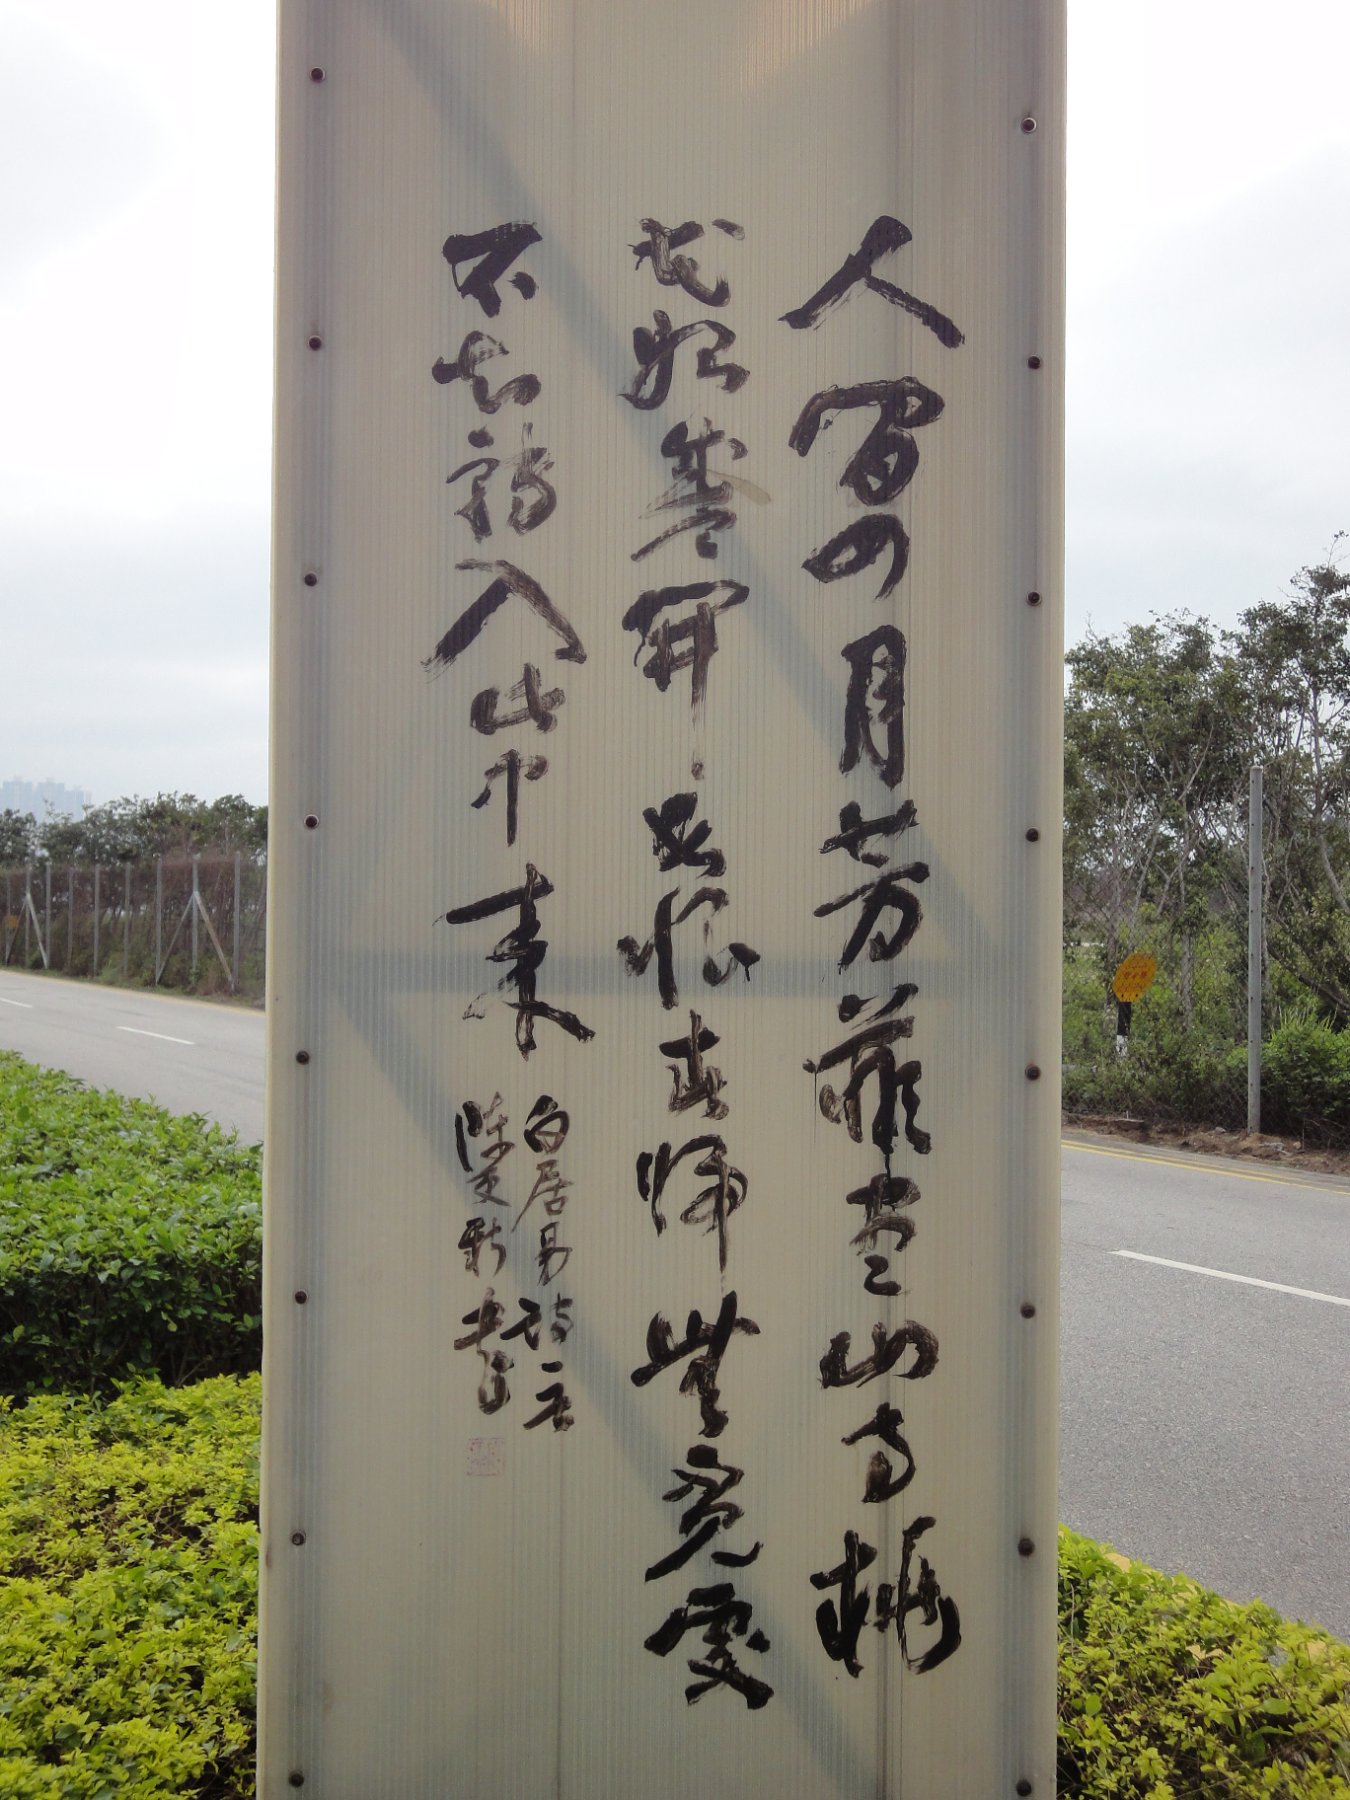 人間四月芳菲盡山寺桃
花始盛開長恨春歸無覓處
不知轉入此中來
白居易詩一首
陳更新書